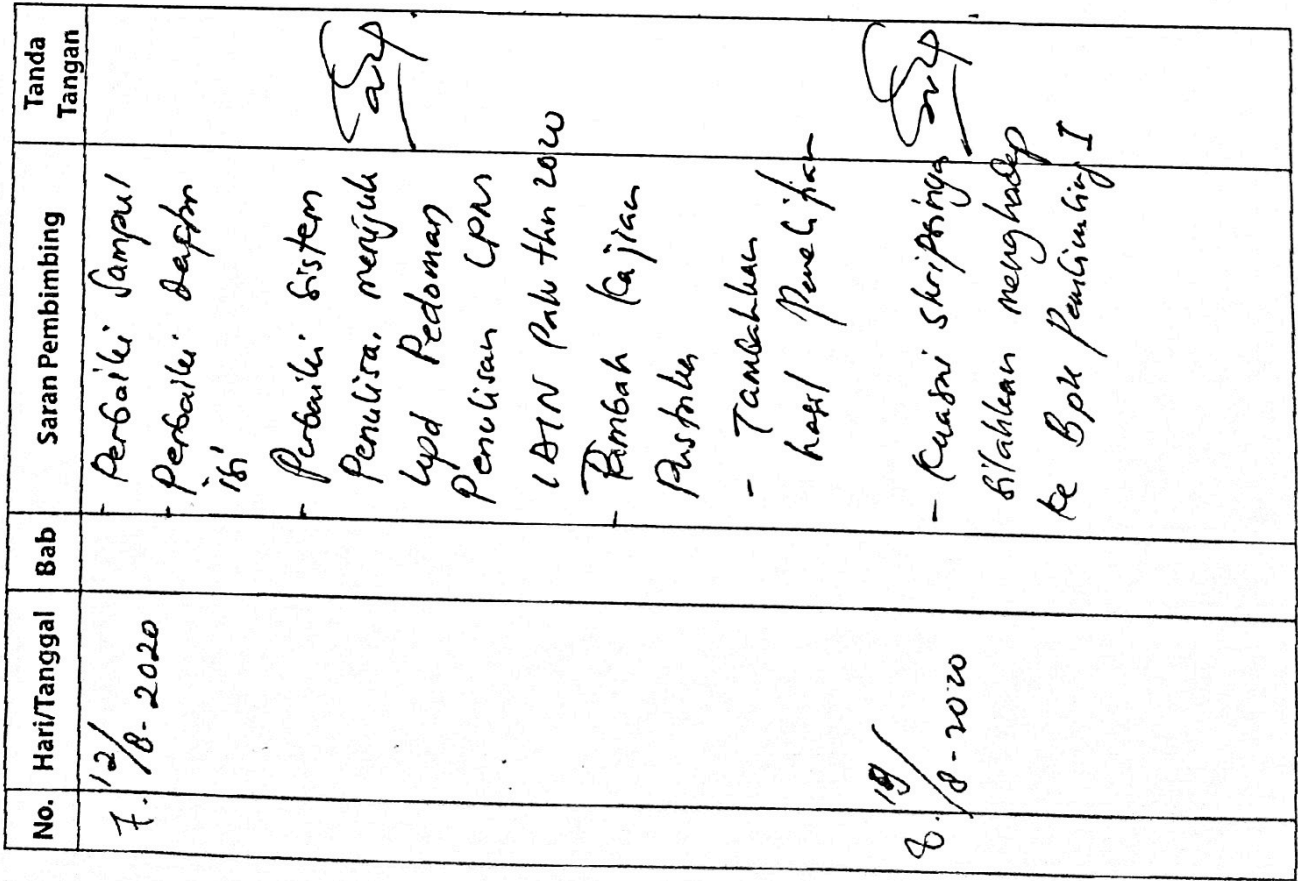 No. Hari/Tanggal Bab Saran Pembimbing Tanda Tangan
7. 12/8-2020
- Perbaiki Sampul
- Perbaiki daftar
isi
- Perbaiki Sistem
Penulisa. merujuk
kpd Pedoman
Penulisan
IAIN Palu thn 2020
- Tambah Kajian
Pustaka
- Tambahkan
hasil Penelitian
8. 19/8-2020
- Kuasai skripsinya
silahkan menghadap
ke Bpk Pembimbing I